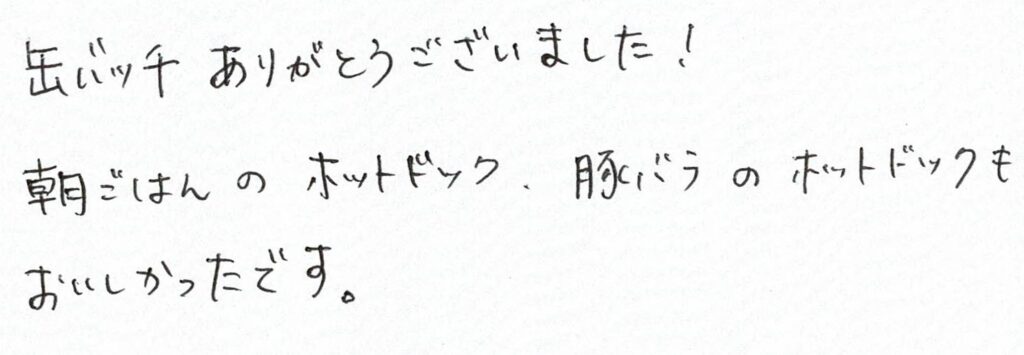 缶バッチ ありがとうございました!
朝ごはんの ホットドック、豚バラの ホットドックも
おいしかったです。